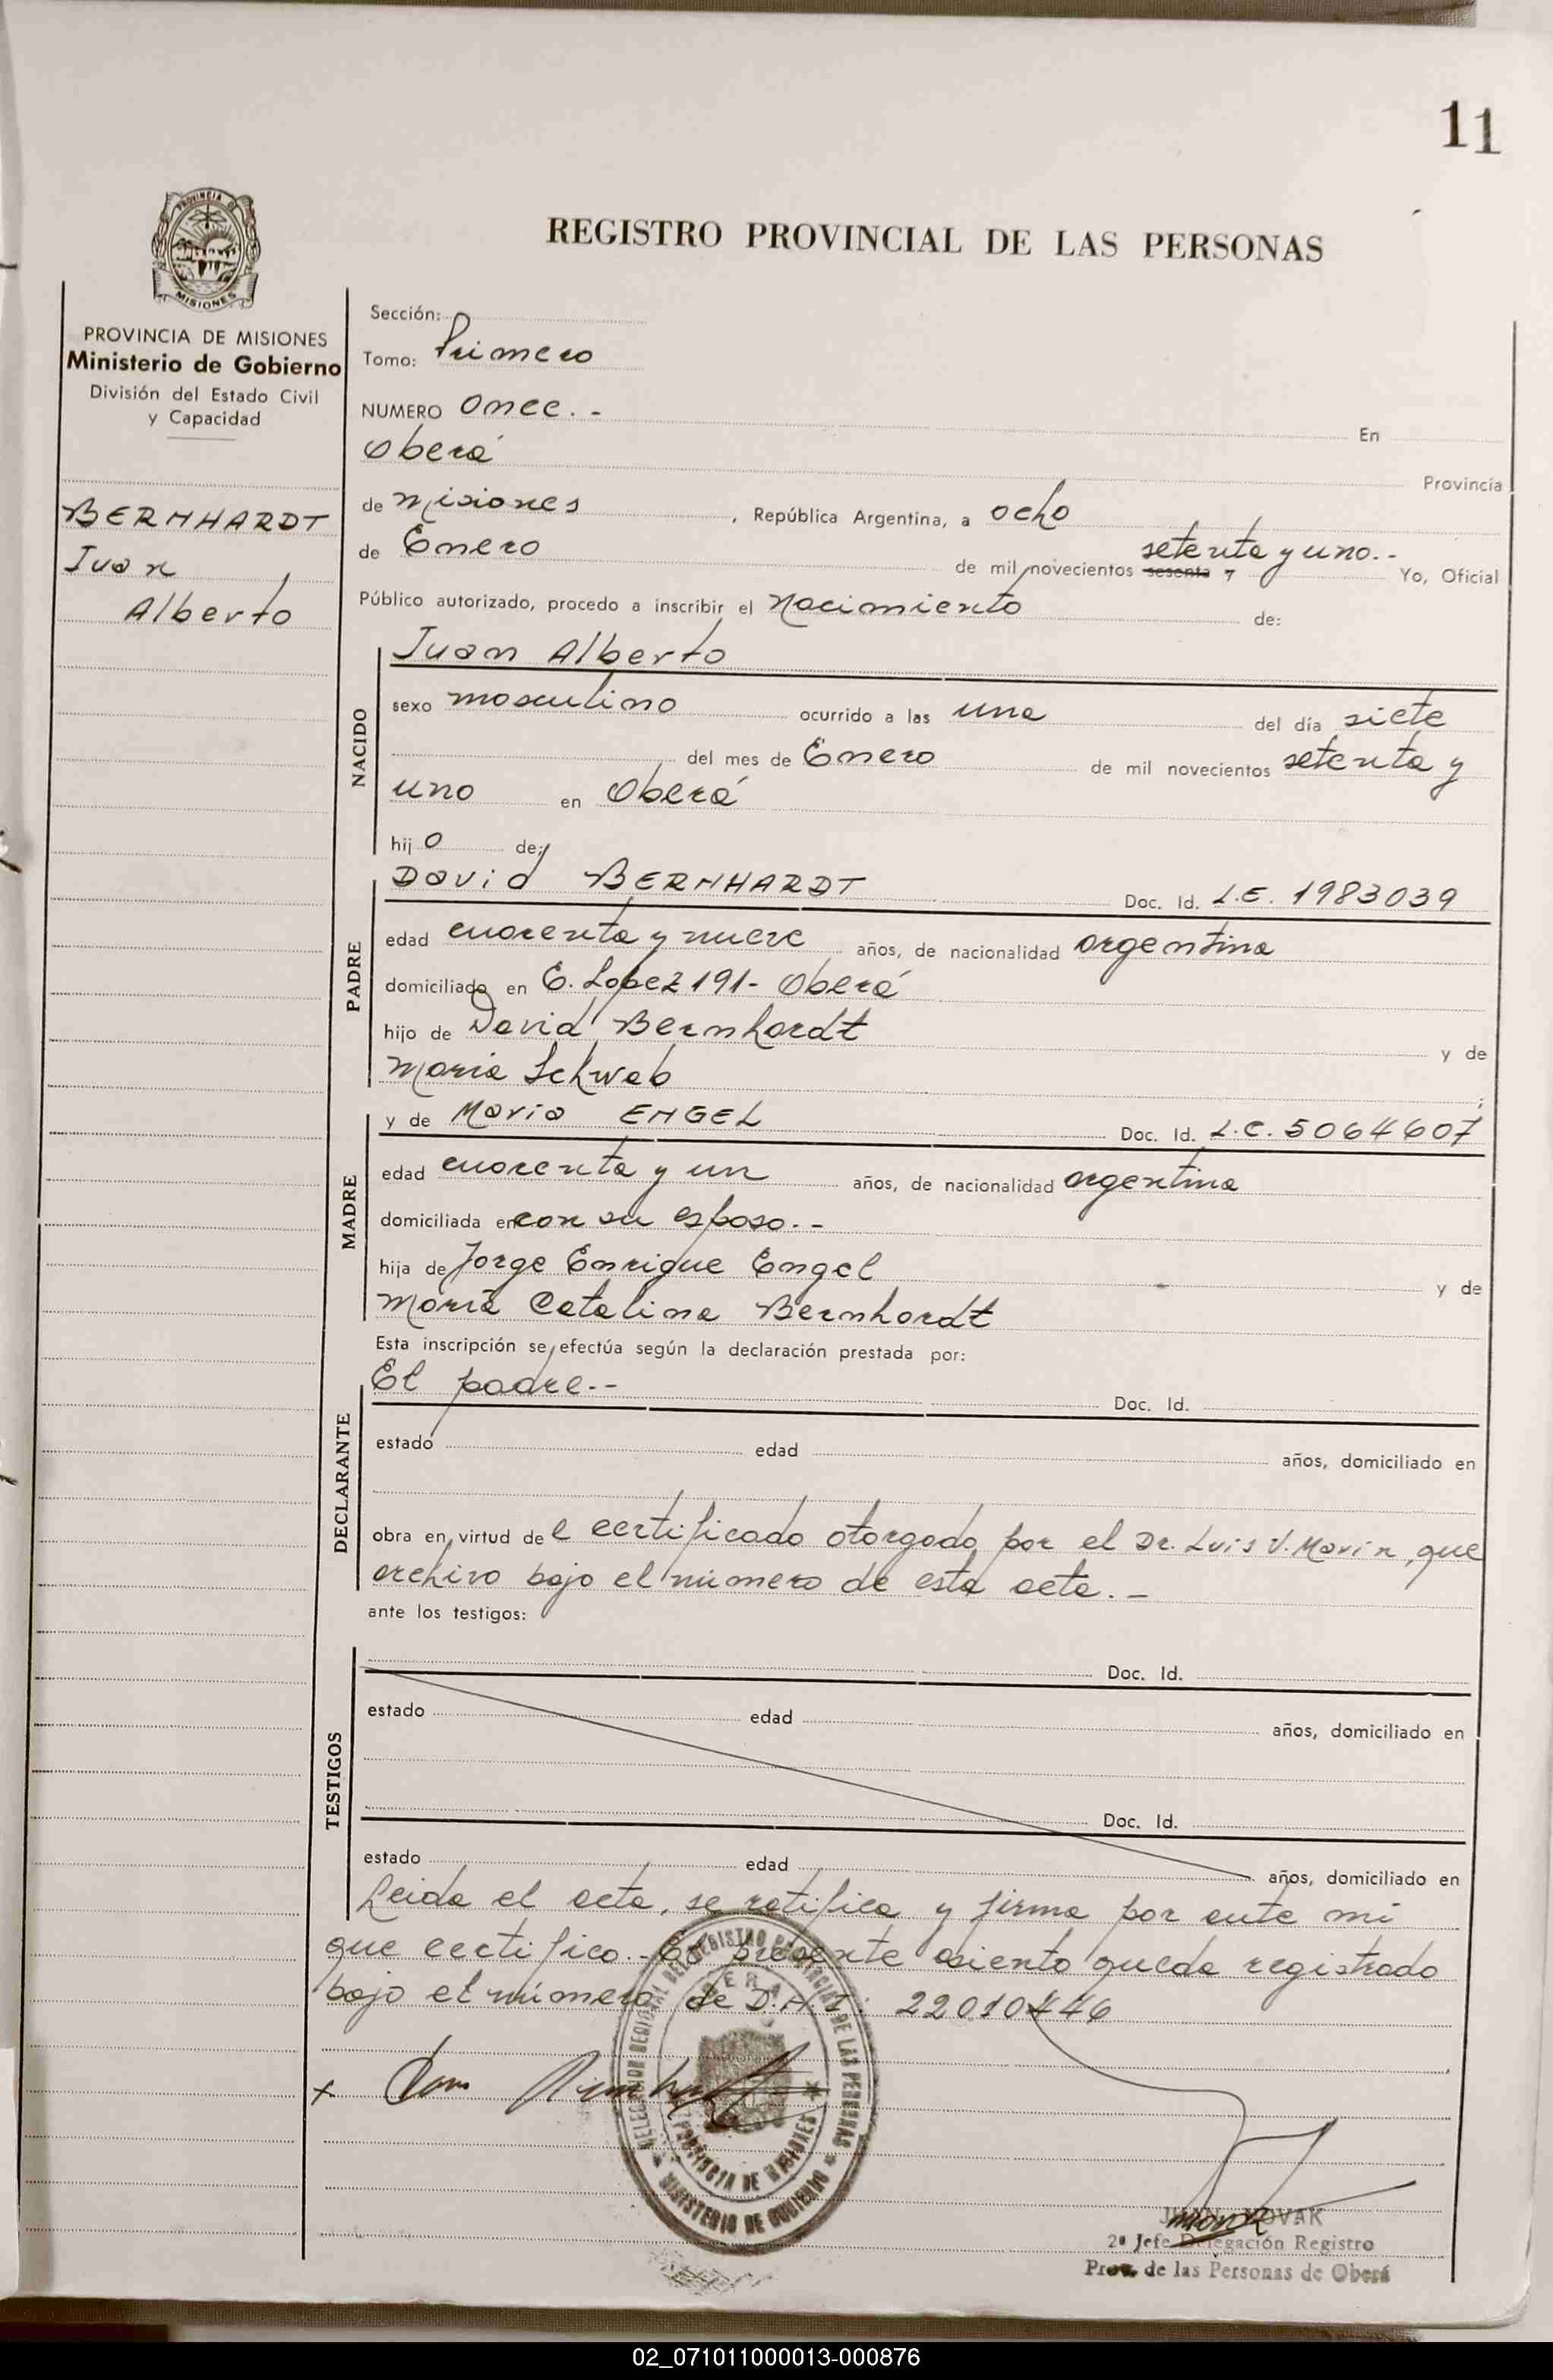 11
REGISTRO PROVINCIAL DE LAS PERSONAS
PROVINCIA DE
MISIONES
PROVINCIA DE MISIONES
Ministerio de Gobierno
División del Estado Civil
y Capacidad
BERNHARDT
Juan
Alberto
Sección:
Tomo: Primero
NUMERO Once.- En
Oberá Provincia
de Misiones, República Argentina, a ocho
de Enero de mil novecientos sesenta y setenta y uno.- Yo, Oficial
Público autorizado, procedo a inscribir el Nacimiento de:
NACIDO
Juan Alberto
sexo masculino ocurrido a las una del día siete
del mes de Enero de mil novecientos setenta y
uno en Oberá
hijo de:
PADRE
David BERNHARDT Doc. Id. L.E. 1983039
edad cuarenta y nueve años, de nacionalidad argentina
domiciliado en E. Lopez 191- Oberá
hijo de David Bernhardt y de
Maria Schwab ;
MADRE
y de Maria ENGEL Doc. Id. L.C. 5064607
edad cuarenta y un años, de nacionalidad argentina
domiciliada en con su esposo.--
hija de Jorge Enrique Engel y de
María Catalina Bernhardt
Esta inscripción se efectúa según la declaración prestada por:
DECLARANTE
El padre.-- Doc. Id.
estado edad años, domiciliado en
obra en virtud del certificado otorgado por el Dr. Luis V. Marin, que
archivo bajo el número de esta acta.-
ante los testigos:
TESTIGOS
Doc. Id.
estado edad años, domiciliado en
Doc. Id.
estado edad años, domiciliado en
Leida el acta, se ratifica y firma por ante mi
que certifico.- El presente asiento queda registrado
bajo el número de D.N.I: 22010446
x
DELEGACION REGIONAL DEL REGISTRO PROVINCIAL DE LAS PERSONAS
OBERA
PROVINCIA DE MISIONES
MINISTERIO DE GOBIERNO
JUAN NOVAK
2º Jefe Delegación Registro
Prov. de las Personas de Oberá
02_071011000013-000876